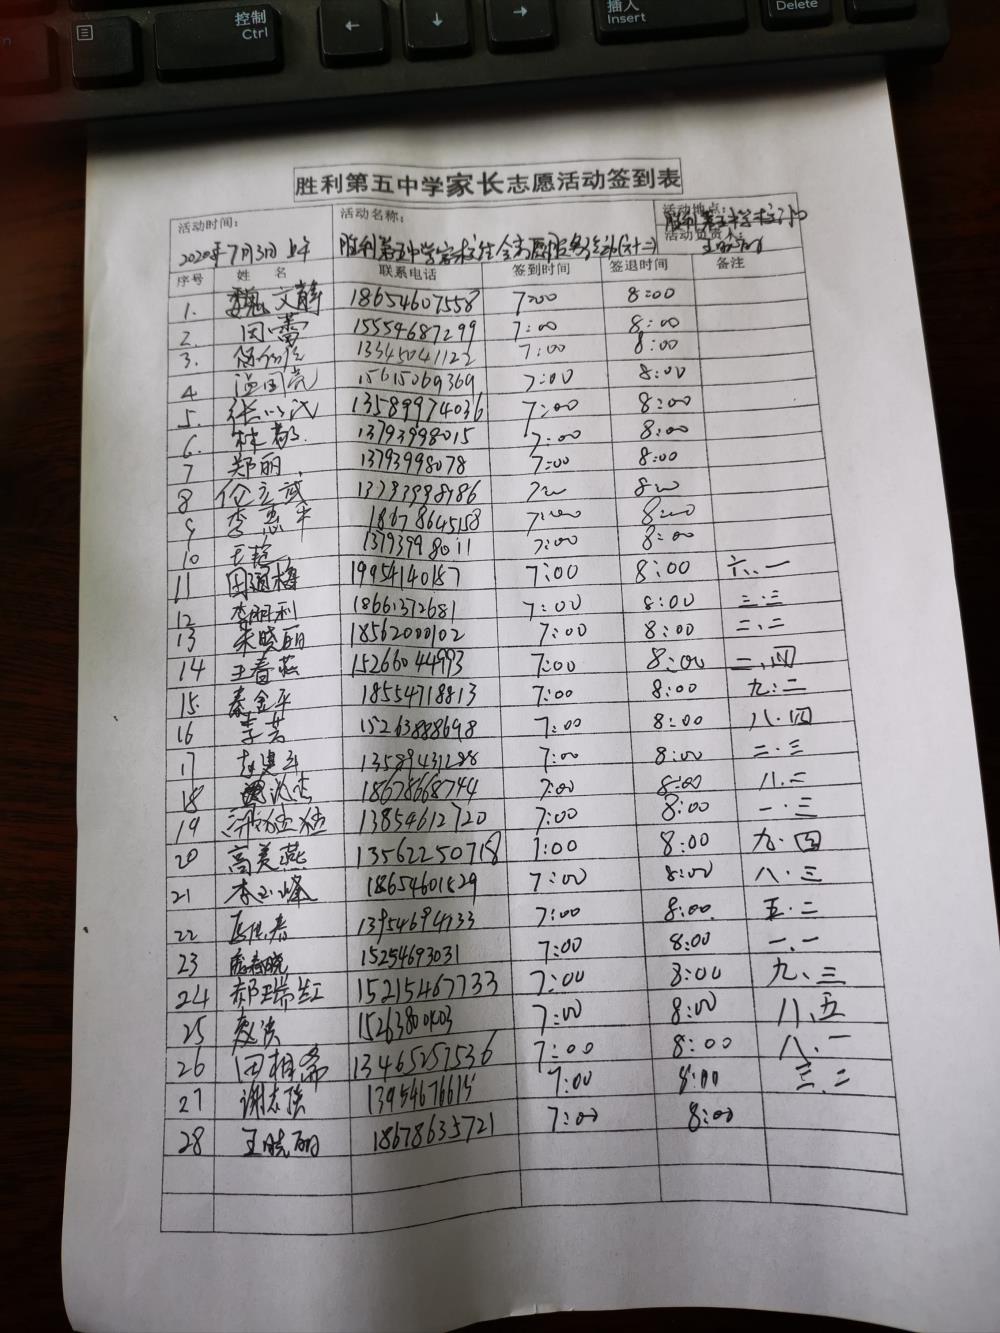 控制
Ctrl
插入
Insert
Delete
胜利第五中学家长志愿活动签到表
活动时间: 活动名称: 活动地点:
2020年7月3日 上午 胜利第五中学家校 胜利第五中学校门口
活动负责人:
序号 姓名 联系电话 签到时间 签退时间 备注
1. 魏文静 18654607558 7:00 8:00
2. 田蕾 15554687299 7:00 8:00
3. 13345041122 7:00 8:00
4 温国亮 15615069369 7:00 8:00
5. 13589974036 7:00 8:00
6. 林 13793998015 7:00 8:00
7 郑丽 13793998078 7:00 8:00
8 13793998986 7:00 8:00
9 李惠 18678645158 7:00 8:00
10 王艳 13793998011 7:00 8:00
11 田迎梅 19954140187 7:00 8:00 六.一
12 李丽利 18661372681 7:00 8:00 三.三
13 宋晓丽 18562000102 7:00 8:00 二、二
14 王春燕 15266044993 7:00 8:00 二、四
15 秦金平 18554718813 7:00 8:00 九.二
16 李芸 15263888698 7:00 8:00 八.四
17 7:00 8:00 二.三
18 18678668744 7:00 8:00 八.二
19 13854612720 7:00 8:00 一.三
20 高美燕 13562250718 7:00 8:00 九.四
21 李玉峰 18654601829 7:00 8:00 八.三
22 13954694733 7:00 8:00 五.二
23 春晓 15254693031 7:00 8:00 一.一
24 郝瑞红 15215467733 7:00 8:00 九、三
25 7:00 8:00 八、五
26 田相 13465257536 7:00 8:00 八、一
27 谢志强 13954676615 7:00 8:00 三.二
28 王晓丽 18678635721 7:00 8:00